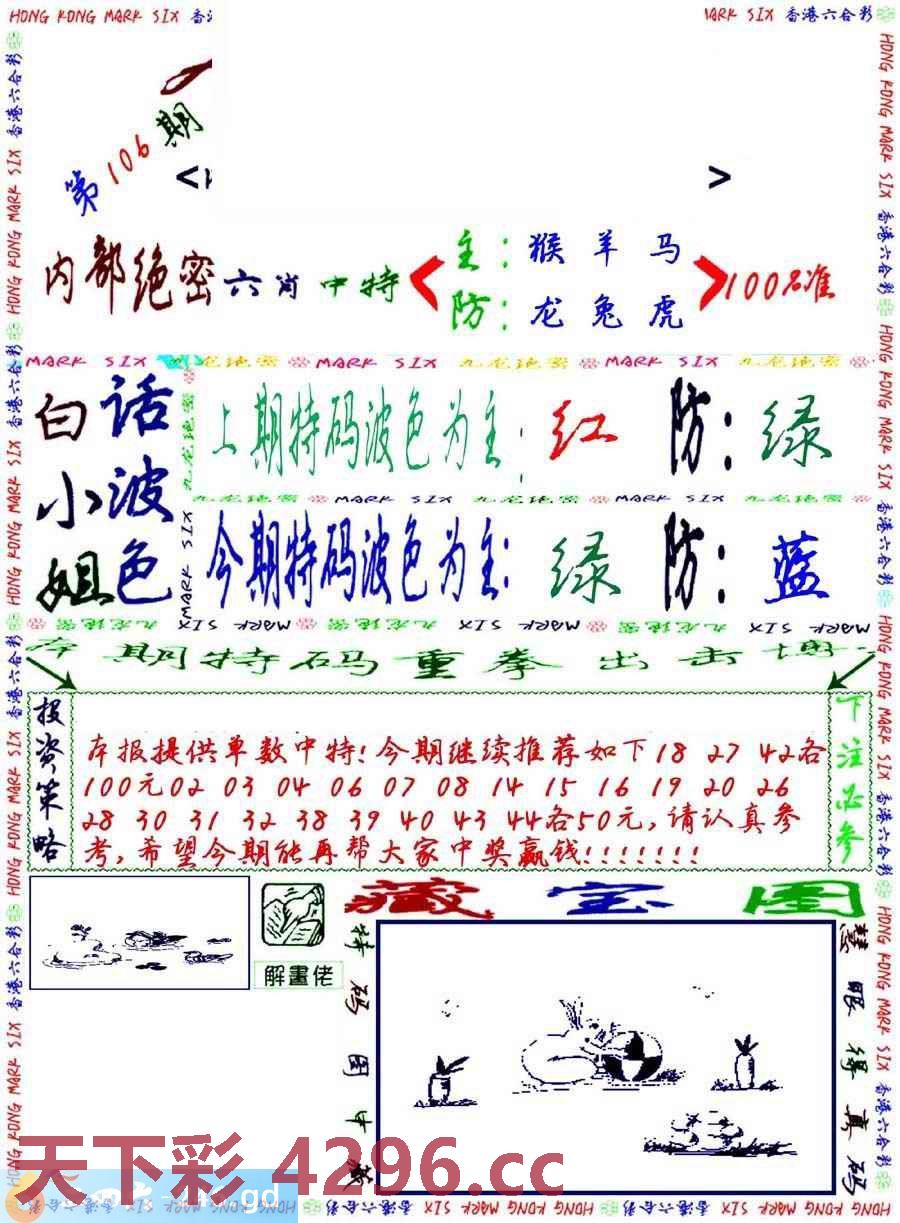 HONG KONG MARK SIX 香港六合彩
第106期
< >
内部绝密六肖中特
主：猴羊马
防：龙兔虎
100%准
MARK SIX 九龙地密 MARK SIX 九龙地密 MARK SIX 九龙地密
白话
小波
姐色
上期特码波色为主：红 防：绿
九龙地密 MARK SIX 九龙地密 MARK SIX
今期特码波色为主：绿 防：蓝
MARK SIX 九龙地密 MARK SIX 九龙地密 MARK SIX 九龙地密
本期特码重拳出击
投资策略
本报提供单数中特!今期继续推荐如下18 27 42各
100元02 03 04 06 07 08 14 15 16 19 20 26
28 30 31 32 38 39 40 43 44各50元,请认真参
考,希望今期能再帮大家中奖赢钱!!!!!!!
下注必参
藏宝图
解畫佬
特码图中藏
慧眼得真码
天下彩 4296.cc
gd
HONG KONG MARK SIX 香港六合彩